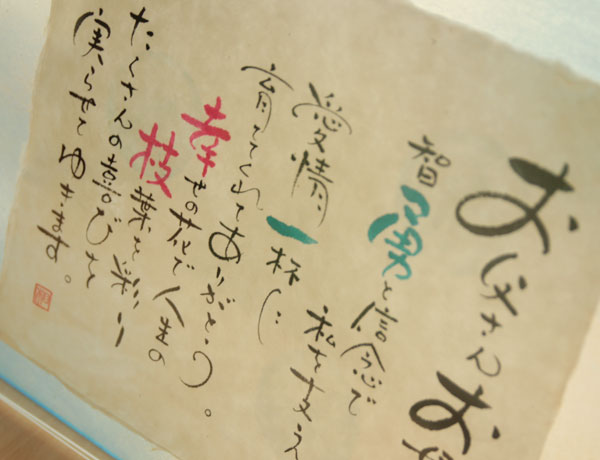 お父さん お
智勇と信念で
私を支え
愛情一杯に
育ててくれてありがとう。
幸せの花で人生の
枝葉を彩り
たくさんの喜びを
実らせてゆきます。